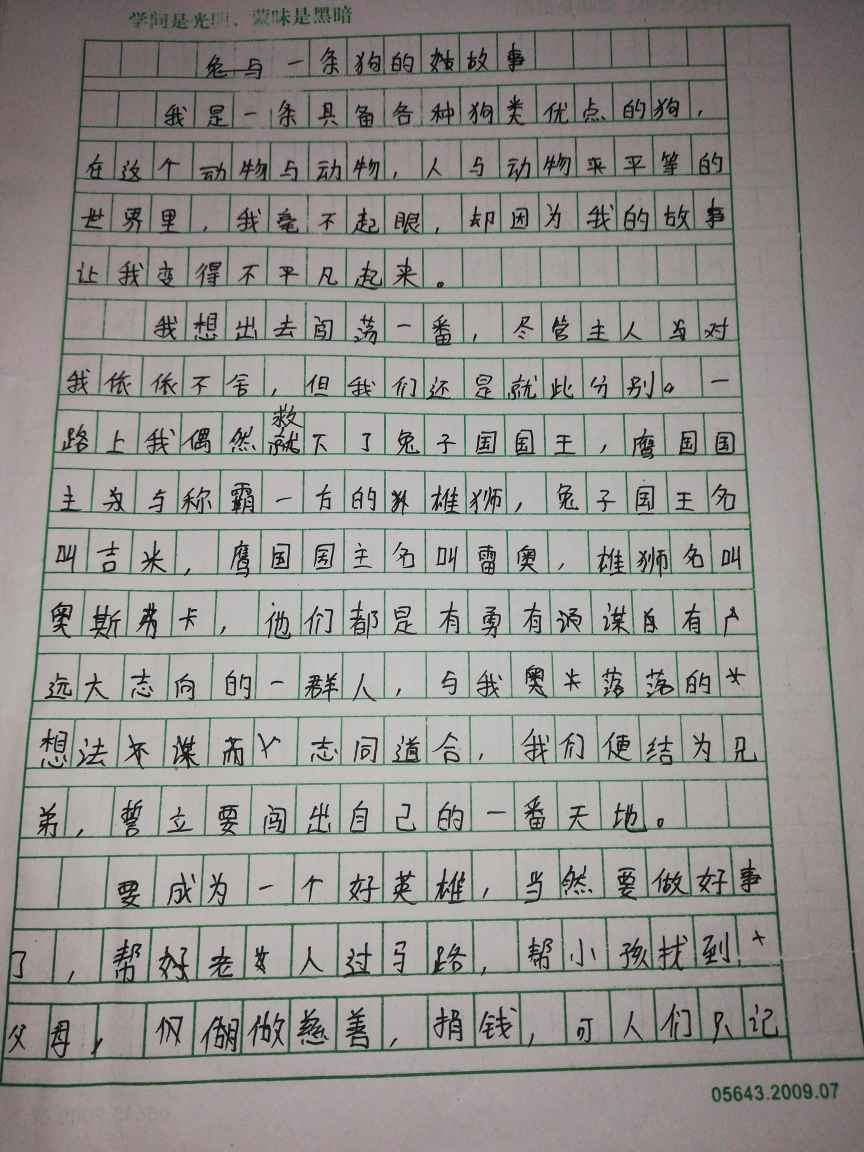 学问是光明、蒙昧是黑暗
兔与一条狗的故事
我是一条具备各种狗类优点的狗，
在这个动物与动物，人与动物来平等的
世界里，我毫不起眼，却因为我的故事
让我变得不平凡起来。
我想出去闯荡一番，尽管主人对
我依依不舍，但我们还是就此分别。一
路上我偶然救下了兔子国国王，鹰国国
主与称霸一方的雄狮，兔子国王名
叫吉米，鹰国国主名叫雷奥，雄狮名叫
奥斯弗卡，他们都是有勇有谋有
远大志向的一群人，与我奥卡落落的
想法志同道合，我们便结为兄
弟，誓立要闯出自己的一番天地。
要成为一个好英雄，当然要做好事
了，帮好老人过马路，帮小孩找到
父母，做慈善，捐钱，可人们只记
05643.2009.07